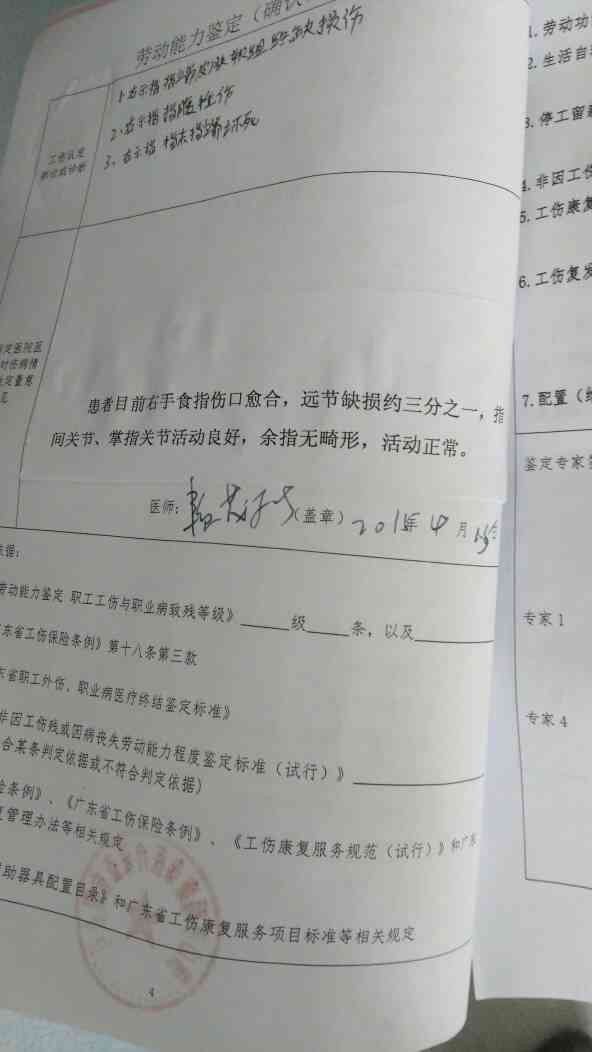 劳动能力鉴定(确认
工伤认定
1、右示指指端皮肤软组织缺损伤
2、右示指指腹挫伤
3、右示指末指端坏死
定医院医
对伤病情
定量意
见
患者目前右手食指伤口愈合，远节缺损约三分之一，指
间关节、掌指关节活动良好，余指无畸形，活动正常。
医师:
(盖章)
201 年 4 月
依据:
劳动能力鉴定 职工工伤与职业病致残等级》 级 条，以及
东省工伤保险条例》第十八条第三款
东省职工外伤、职业病医疗终结鉴定标准》
非因工伤残或因病丧失劳动能力程度鉴定标准(试行)》
合某条判定依据或不符合判定依据)
险条例》、《广东省工伤保险条例》、《工伤康复服务规范(试行)》和广东
管理办法等相关规定
助器具配置目录》和广东省工伤康复服务项目标准等相关规定
4
1.劳动功
2.生活自
3.停工留
4.非因工伤
5.工伤康复
6.工伤复发
7.配置(
鉴定专家
专家1
专家4